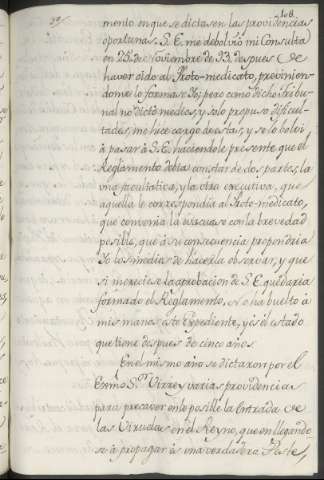 208.
mento en que se dictasen las providencias
oportunas. S. E. me debolvió mi Consulta
en 25 de Noviembre de 93, despues de
haver oido al Proto-medicato, previnien-
dome lo formase Yo; pero como dicho Tribu-
nal no dictó medios, y solo propuso dificul-
tades, me hice cargo de estas, y se lo bolví
á pasar á S. E. haciendole presente que el
Reglamento debia constar de dos partes, la
una facultativa, y la otra executiva, que
aquella le correspondia al Proto-medicato,
que convenia la evacuase con la brevedad
posible, que á su consecuencia propondria
Yo los medios de hacerla observar, y que
si mereciese la aprobacion de S. E. quedaria
formado el Reglamento. No ha buelto á
mis manos este Expediente, y es el estado
que tiene despues de cinco años.
En el mismo año se dictaron por el
Exmo. Sor. Virrey varias providencias
para precaver en lo posible la entrada de
las Viruelas en el Reyno, que en llegando-
se á propagar es una verdadera Peste,